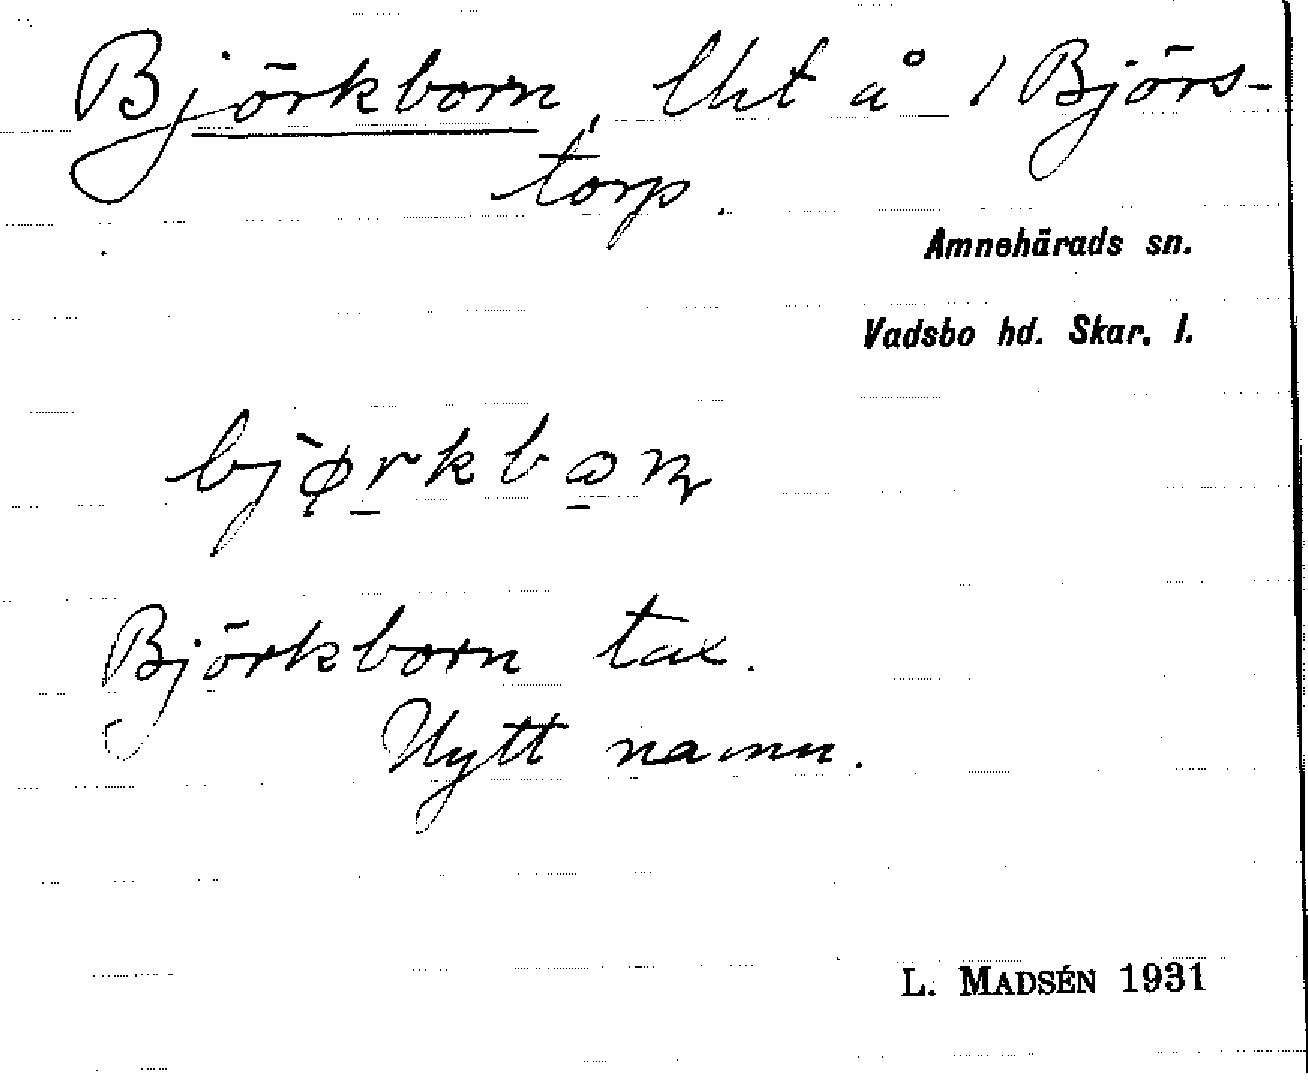 Björkborn, lht å 1 Björs-
torp.
Amnehärads sn.
Vadsbo hd. Skar. l.
Björkborn tax.
Nytt namn.
L. MADSÉN 1931